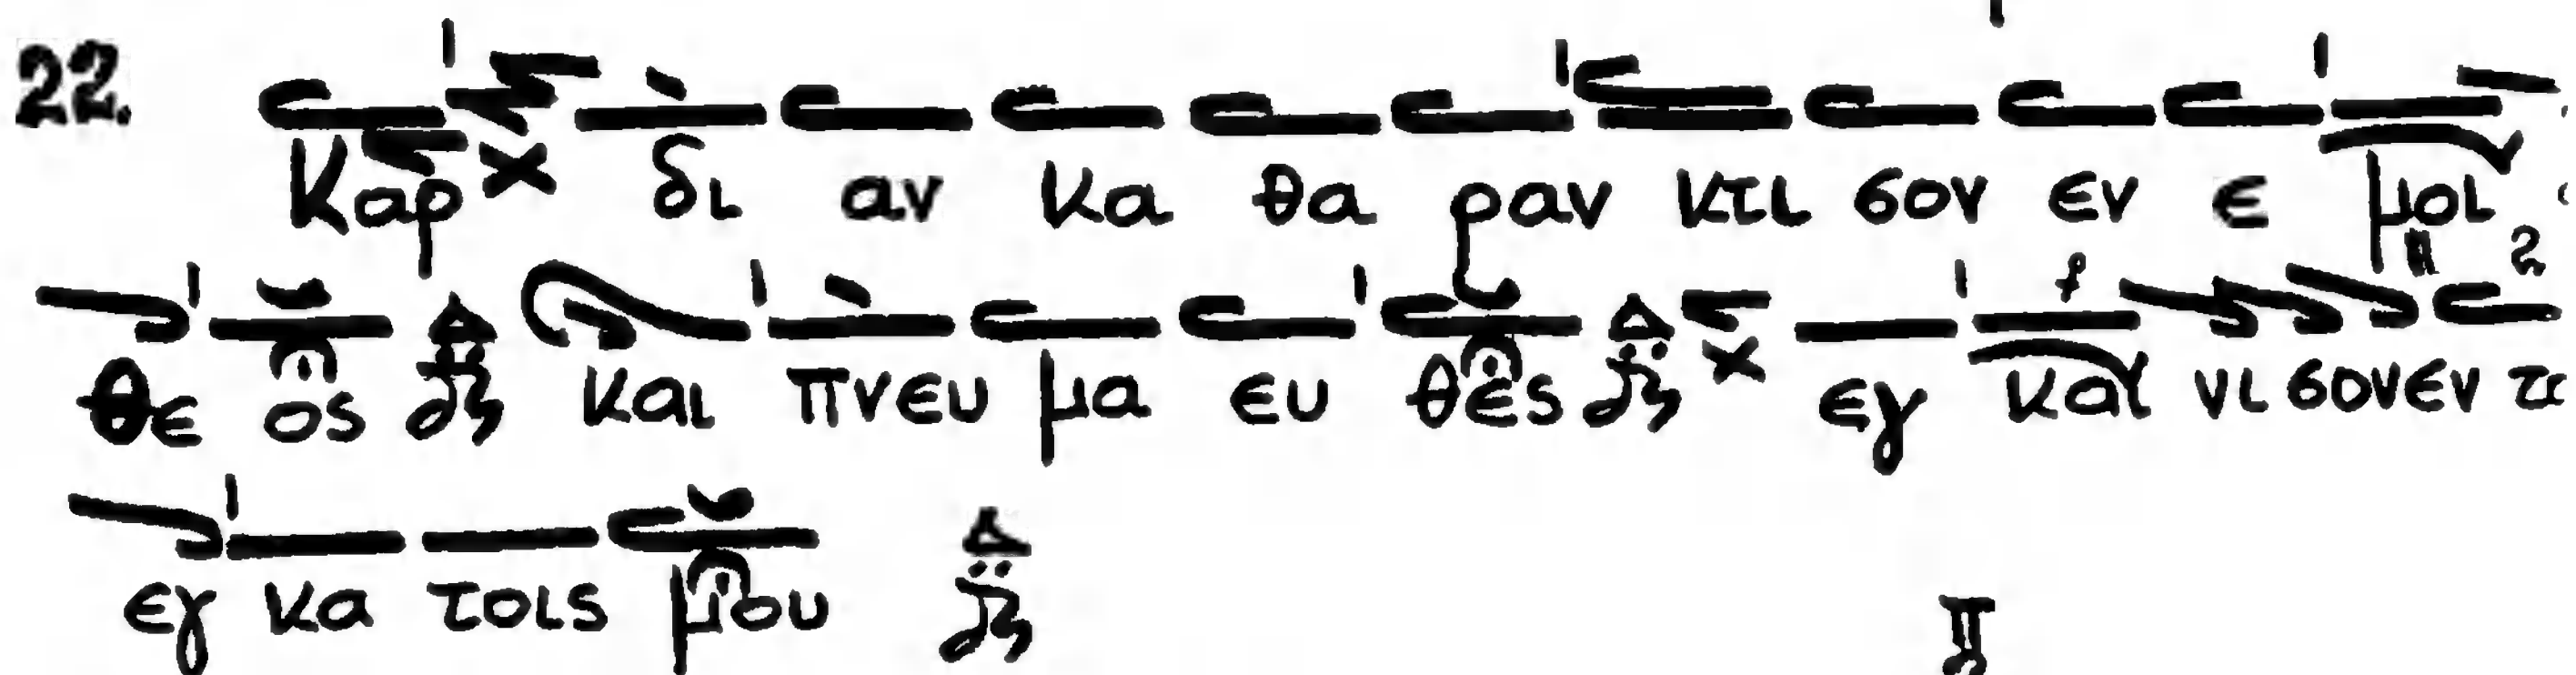 22. Καρ δι αν κα θα ραν κτι σον εν ε μοι
θε ος Δι και πνευ μα ευ θες Δι εγ και νι σον εν
εγ κα τοις μου Δι